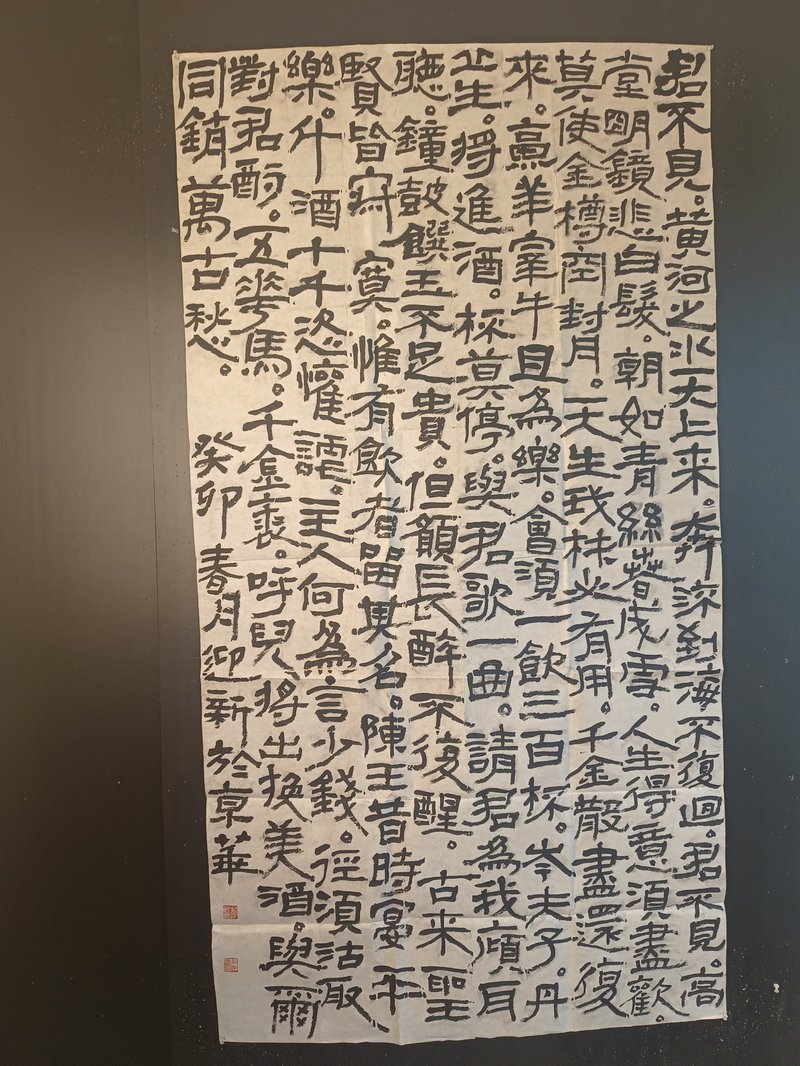 君不見。黄河之水天上来。奔流到海不復迴。君不見。高
堂明鏡悲白髮。朝如青絲暮成雪。人生得意須盡歡。
莫使金樽空對月。天生我材必有用。千金散盡還復
來。烹羊宰牛且為樂。會須一飲三百杯。岑夫子。丹
丘生。將進酒。杯莫停。與君歌一曲。請君為我傾耳
聽。鐘鼓饌玉不足貴。但願長醉不復醒。古来聖
賢皆寂寞。惟有飲者留其名。陳王昔時宴平
樂。斗酒十千恣懽謔。主人何為言少錢。徑須沽取
對君酌。五花馬。千金裘。呼兒將出换美酒。與爾
同銷萬古愁。
癸卯春月迎新於京華